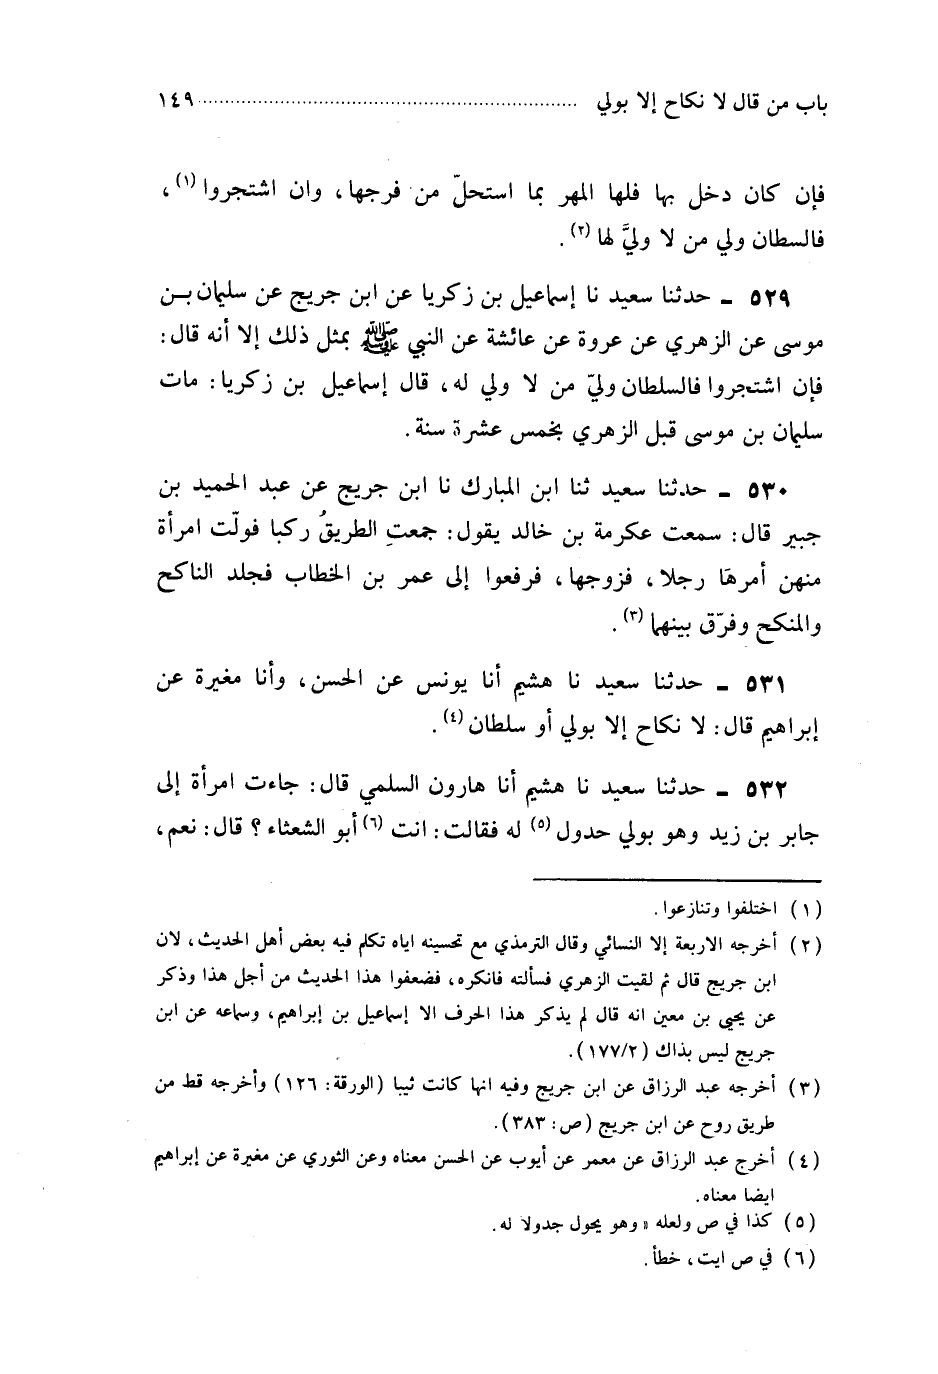 باب من قال لا نكاح إلا بولي ........................................ ١٤٩
فإن كان دخل بها فلها المهر بما استحلّ من فرجها، وان اشتجروا (١)،
فالسطان ولي من لا وليَّ لها (٢).
٥٢٩ ـ حدثنا سعيد نا إسماعيل بن زكريا عن ابن جريج عن سليمان بن
موسى عن الزهري عن عروة عن عائشة عن النبي ﷺ بمثل ذلك إلا أنه قال:
فإن اشتجروا فالسلطان وليّ من لا ولي له، قال إسماعيل بن زكريا: مات
سليمان بن موسى قبل الزهري بخمس عشرة سنة.
٥٣٠ ـ حدثنا سعيد ثنا ابن المبارك نا ابن جريج عن عبد الحميد بن
جبير قال: سمعت عكرمة بن خالد يقول: جمعتِ الطريقُ ركبا فولّت امرأة
منهن أمرهَا رجلا، فزوجها، فرفعوا إلى عمر بن الخطاب فجلد الناكح
والمنكح وفرّق بينهما (٣).
٥٣١ ـ حدثنا سعيد نا هشيم أنا يونس عن الحسن، وأنا مغيرة عن
إبراهيم قال: لا نكاح إلا بولي أو سلطان (٤).
٥٣٢ ـ حدثنا سعيد نا هشيم أنا هارون السلمي قال: جاءت امرأة إلى
جابر بن زيد وهو بولي حدول (٥) له فقالت: انت (٦) أبو الشعثاء؟ قال: نعم،
(١) اختلفوا وتنازعوا.
(٢) أخرجه الاربعة إلا النسائي وقال الترمذي مع تحسينه اياه تكلم فيه بعض أهل الحديث، لان
ابن جريج قال ثم لقيت الزهري فسألته فانكره، فضعفوا هذا الحديث من أجل هذا وذكر
عن يحيى بن معين انه قال لم يذكر هذا الحرف الا إسماعيل بن إبراهيم، وسماعه عن ابن
جريج ليس بذاك (١٧٧/٢).
(٣) أخرجه عبد الرزاق عن ابن جريج وفيه انها كانت ثيبا (الورقة: ١٢٦) وأخرجه قط من
طريق روح عن ابن جريج (ص: ٣٨٣).
(٤) أخرج عبد الرزاق عن معمر عن أيوب عن الحسن معناه وعن الثوري عن مغيرة عن إبراهيم
ايضا معناه.
(٥) كذا في ص ولعله « وهو يحول جدولا له.
(٦) في ص ايت، خطأ.